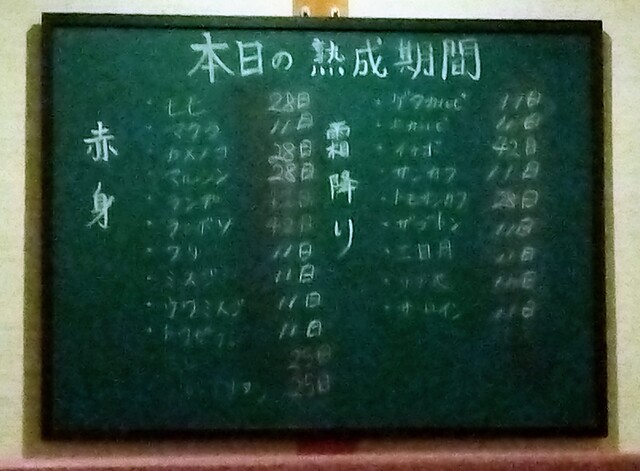 本日の熟成期間
赤身
・ヒレ 28日
・マクラ 11日
・カメノコ 28日
・マルシン 28日
・ランプ
・ランボソ 42日
・クリ 11日
・ミスジ 11日
・ウワミスジ 11日
・トウガラシ 11日
25日
25日
霜降り
・ゲタカルビ 11日
・上カルビ 11日
・イチボ 42日
・サンカク 11日
・トモサンカク 28日
・ザブトン 11日
・三日月 11日
・リブ 11日
・サーロイン 11日